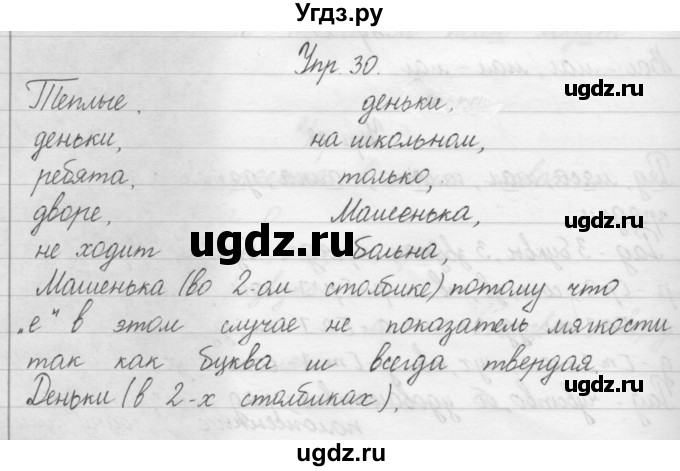 Угдз.ру
Упр. 30.
Теплые. деньки.
деньки, на школьном,
ребята, только,
дворе, Машенька,
не ходит больна,
Машенька (во 2-ом столбике) потому что
„е" в этом случае не показатель мягкости
так как буква ш всегда твердая
Деньки (в 2-х столбиках).
ugdz.ru
ugdz.ru
ugdz.ru
ugdz.ru
ugdz.ru
ugdz.ru